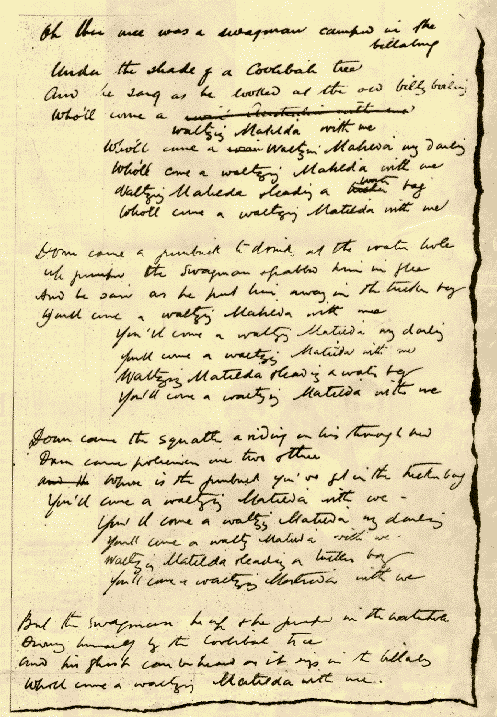 Oh there once was a swagman camped in the
billabong
Under the shade of a Coolibah tree
And he sang as he looked at the old billy boiling
Who'll come a waltzing Matilda with me
Who'll come a waltzing Matilda my darling
Who'll come a waltzing Matilda with me
Waltzing Matilda leading a water bag
Who'll come a waltzing Matilda with me
Down came a jumbuck to drink at the water hole
Up jumped the swagman & grabbed him in glee
And he said as he put him away in the tucker bag
You'll come a waltzing Matilda with me
You'll come a waltzing Matilda my darling
You'll come a waltzing Matilda with me
Waltzing Matilda leading a water bag
You'll come a waltzing Matilda with me
Down came the squatter a riding on his thoroughbred
Down came policemen one two & three
Whose is the jumbuck you've got in the tucker bag
You'll come a waltzing Matilda with we
You'll come a waltzing Matilda my darling
You'll come a waltzing Matilda with we
Waltzing Matilda leading a tucker bag
You'll come a waltzing Matilda with we
But the swagman he up & he jumped in the waterhole
Drowning himself by the Coolibah tree
And his ghost can be heard as it sings in the billabong
Who'll come a waltzing Matilda with me.